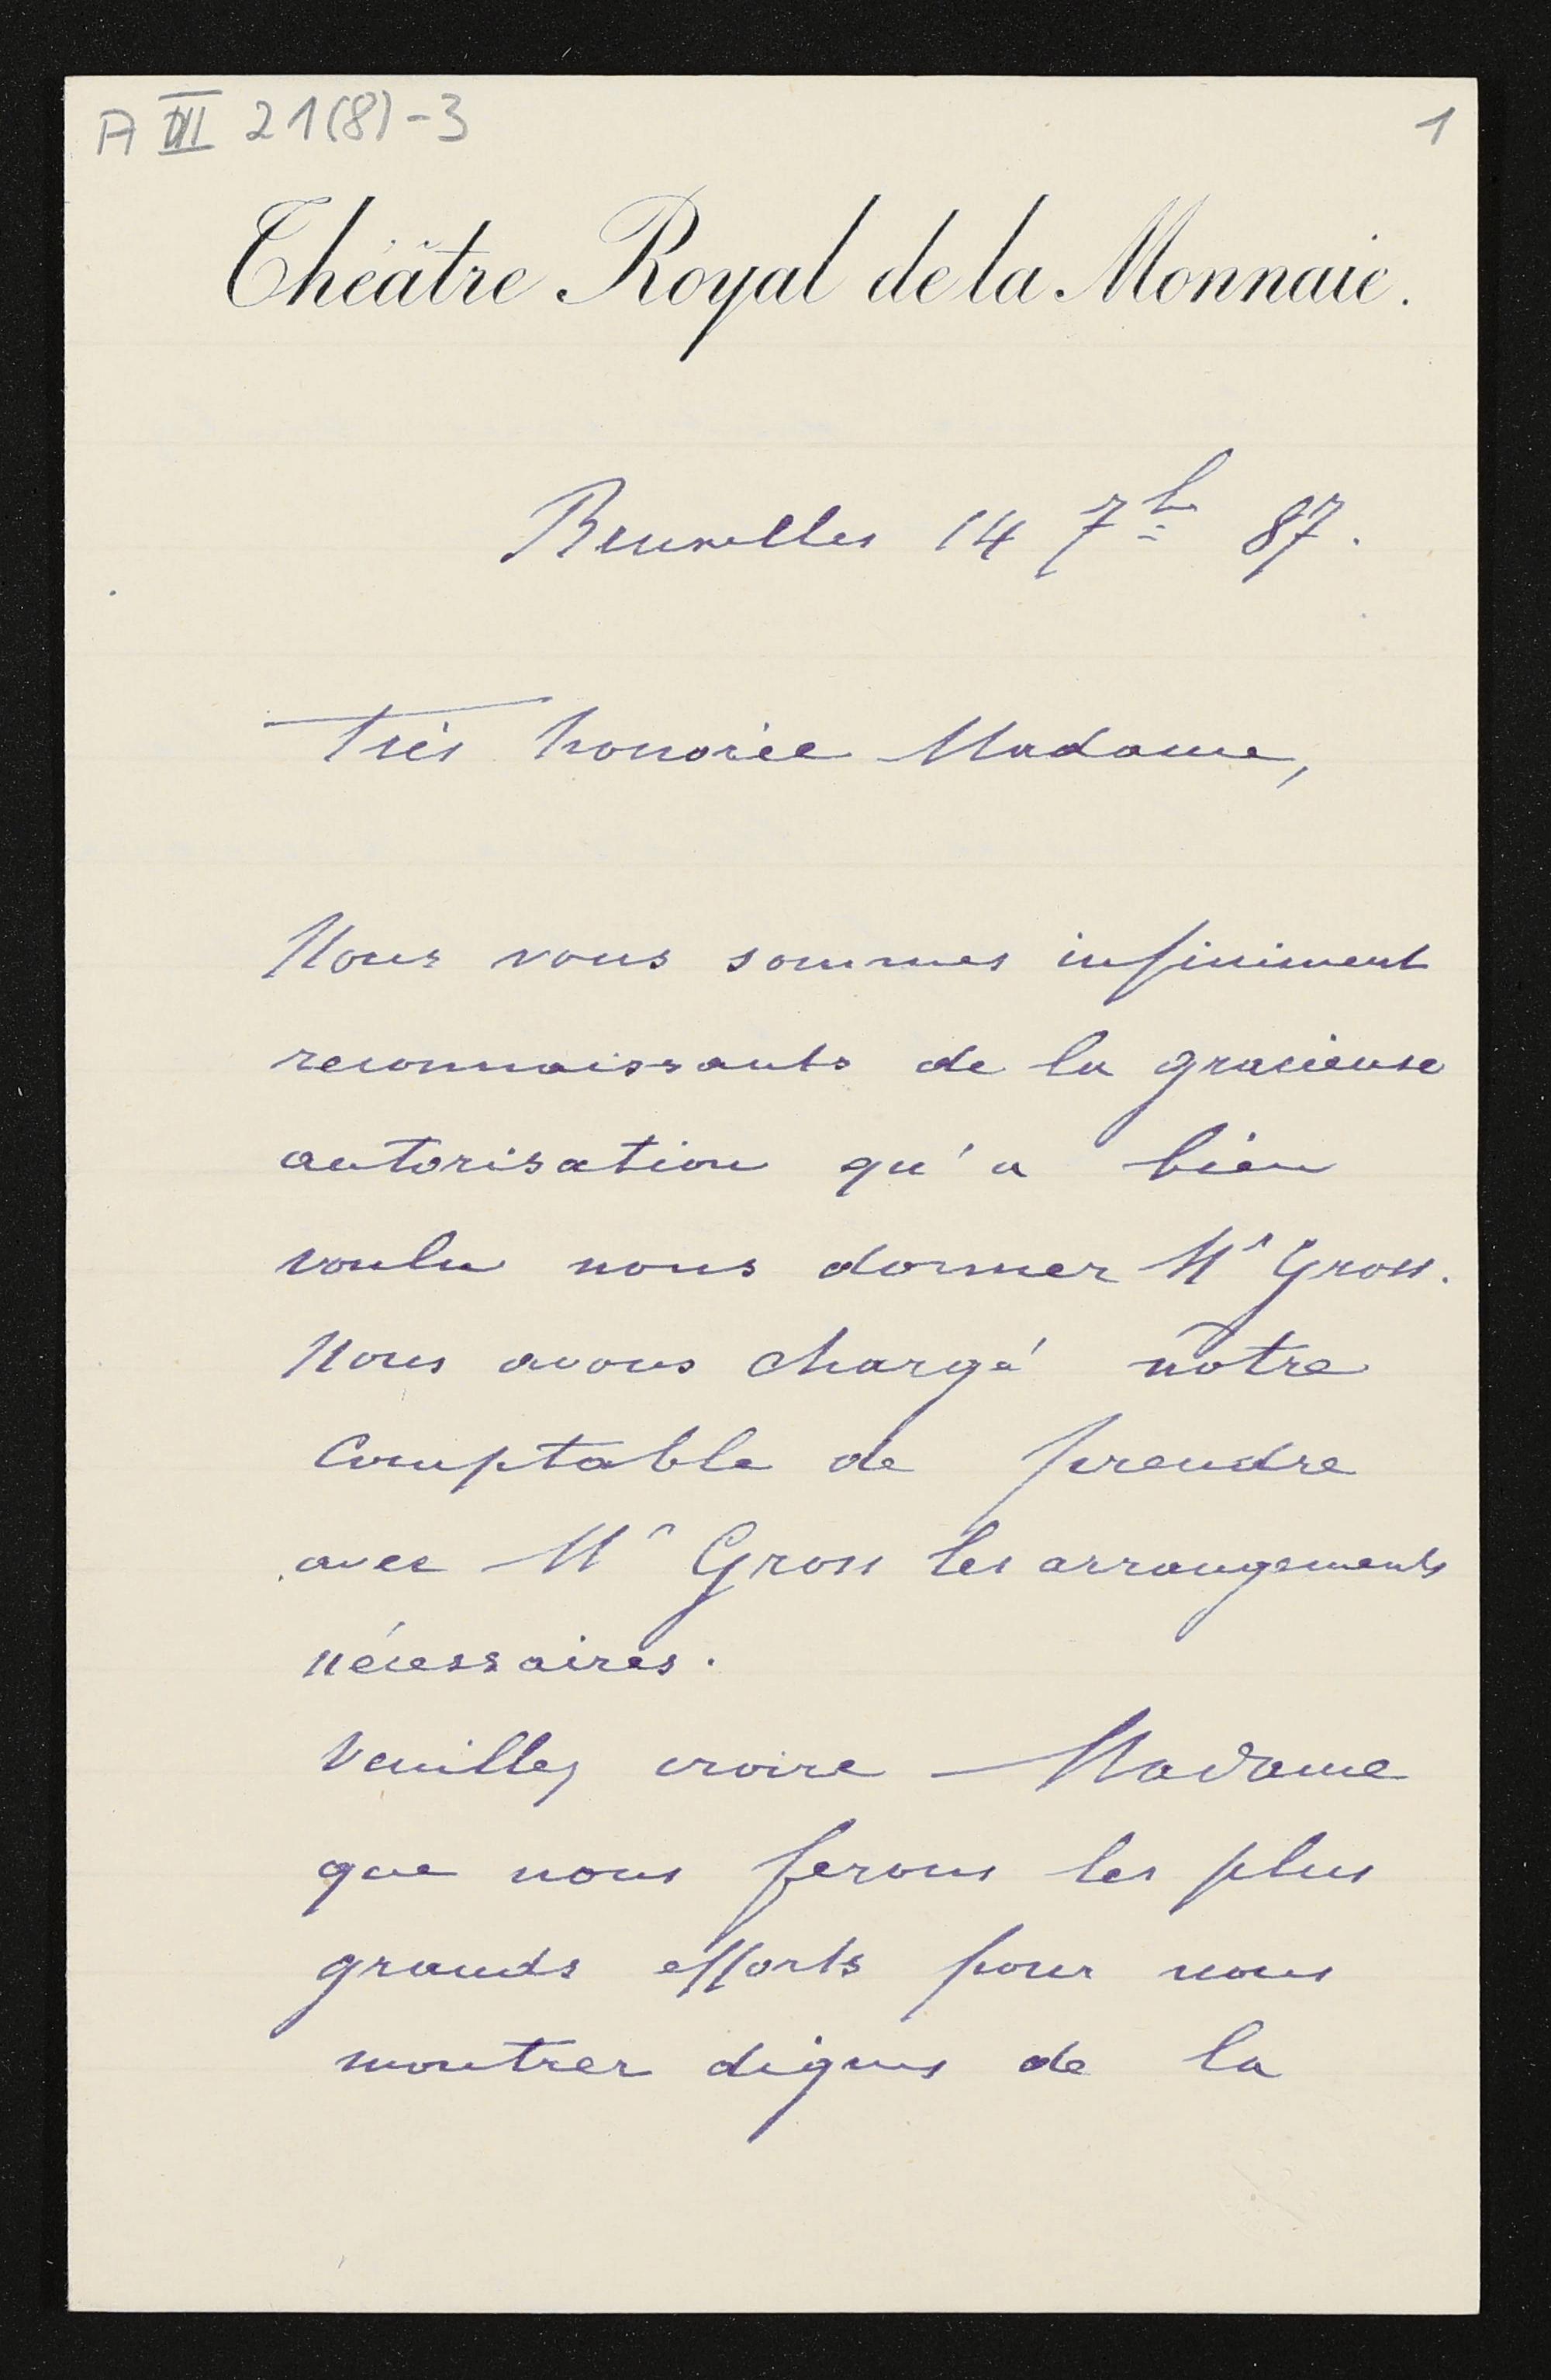 A VII 21(8)-3
1
Théâtre Royal de la Monnaie.
Bruxelles 14 7b 87.
Très honorée Madame,
Nous vous sommes infiniment
reconnaissants de la gracieuse
autorisation qu'a bien
voulu nous donner Mr Gross.
Nous avons chargé notre
Comptable de prendre
avec Mr Gross les arrangements
nécessaires.
Veuillez croire Madame
que nous ferons les plus
grands efforts pour nous
montrer dignes de la